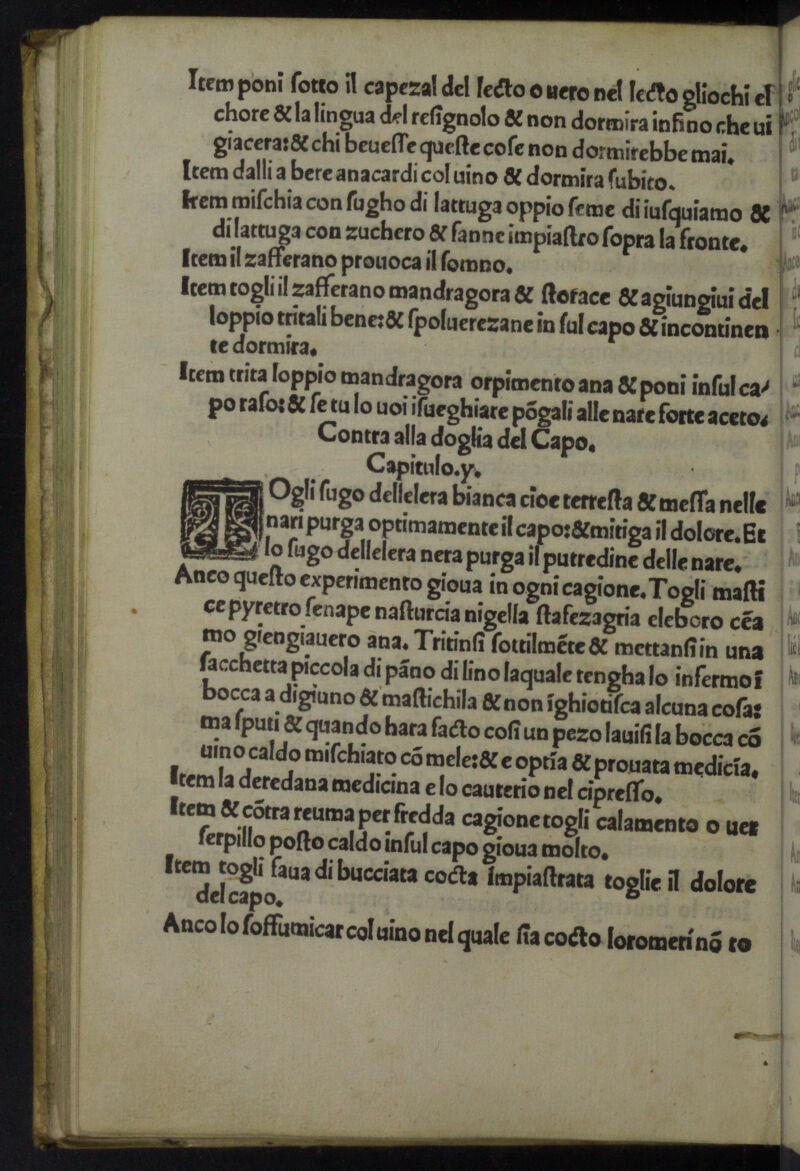 Item poni ſotto il capezal del lecto o uero nel lecto gliochi el
chore & la lingua del reſignolo & non dormira infino che ui
giacera: & chi beueſſe queſte coſe non dormirebbe mai.
Item dalli a bere anacardi col uino & dormira ſubito.
Item miſchia con ſugho di lattuga oppio ſeme di iuſquiamo &
di lattuga con zuchero & fanne impiaſtro ſopra la fronte.
Item il zafferano prouoca il ſomno.
Item togli il zafferano mandragora & ſtorace & agiungiui del
loppio tritali bene: & ſpoluerezane in ſul capo & incontinen
te dormira.
Item trita loppio mandragora orpimento ana & poni inſul ca/
po raſo: & ſe tu lo uoi iſueghiare põgali alle nare forte aceto.
Contra alla doglia del Capo.
Capitulo.y.
TOgli ſugo dellelera bianca cioe terreſta & meſſa nelle
nari purga optimamente il capo: & mitiga il dolore. Et
lo ſugo dellelera nera purga il putredine delle nare.
Anco queſto experimento gioua in ogni cagione. Togli maſti
ce pyretro ſenape naſturcia nigella ſtafezagria eleboro cẽa
mo giengiauero ana. Tritinſi ſottilmẽte & mettanſi in una
ſacchetta piccola di pãno di lino laquale tengha lo infermo ĩ
bocca a digiuno & maſtichila & non ĩghiotiſca alcuna coſa:
ma ſputi & quando hara facto coſi un pezo lauiſi la bocca cõ
uino caldo miſchiato cõ mele: & e optĩa & prouata medicĩa.
Item la deredana medicina e lo cauterio nel cipreſſo.
Item & cõtra reuma per fredda cagione togli calamento o uer
ſerpillo poſto caldo inſul capo gioua molto.
Item togli faua di bucciata cocta ĩmpiaſtrata toglie il dolore
del capo.
Anco lo ſoffumicar col uino nel quale ſia cocto loromerino to